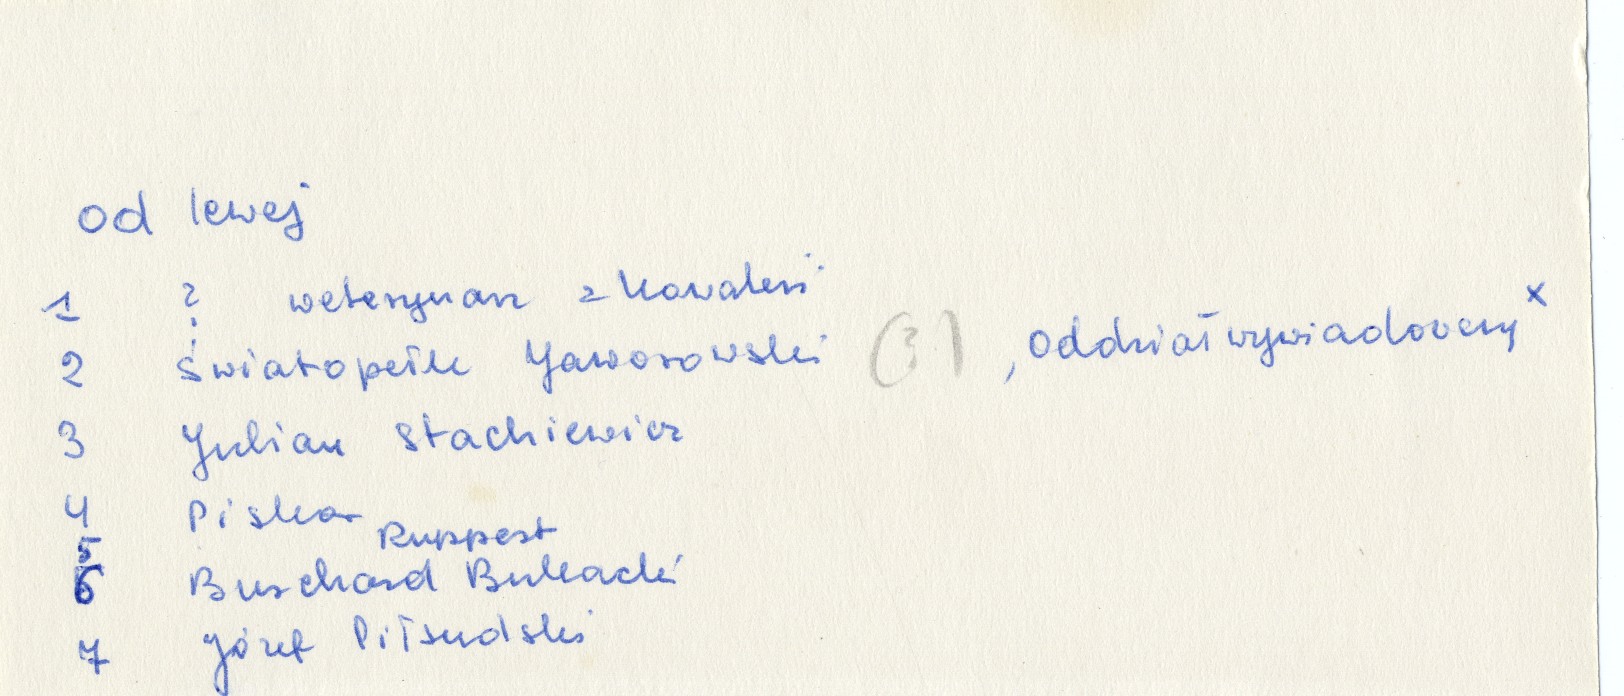 od lewej
1 ? weterynarz z Kowalerii
2 Światopełk Jaworowski (3), Oddział wywiadowczy x
3 Julian Stachiewicz
4 Piskor
5 Ruppert
6 Burchard Bukacki
7 Józef Piłsudski